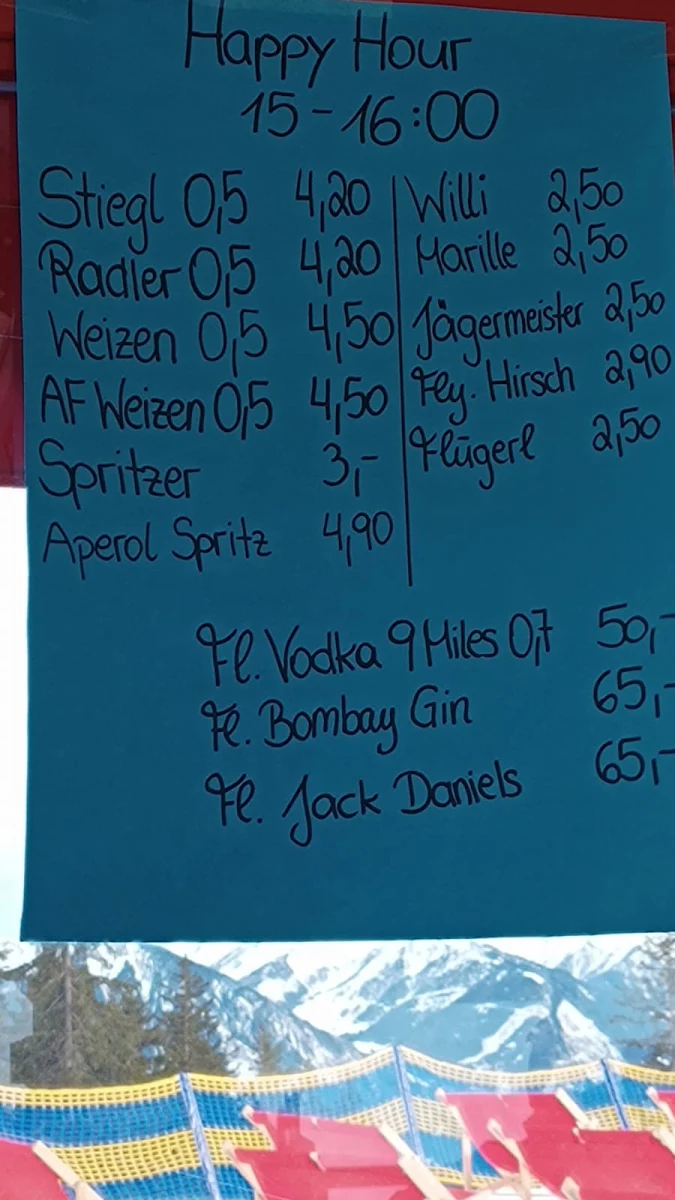 Happy Hour
15-16:00
Stiegl 0,5 4,20
Radler 0,5 4,20
Weizen 0,5 4,50
AF Weizen 0,5 4,50
Spritzer 3,-
Aperol Spritz 4,90
Willi 2,50
Marille 2,50
Jägermeister 2,50
Fly. Hirsch 2,90
Flügerl 2,50
Fl. Vodka 9 Miles 0,7 50,-
Fl. Bombay Gin 65,-
Fl. Jack Daniels 65,-